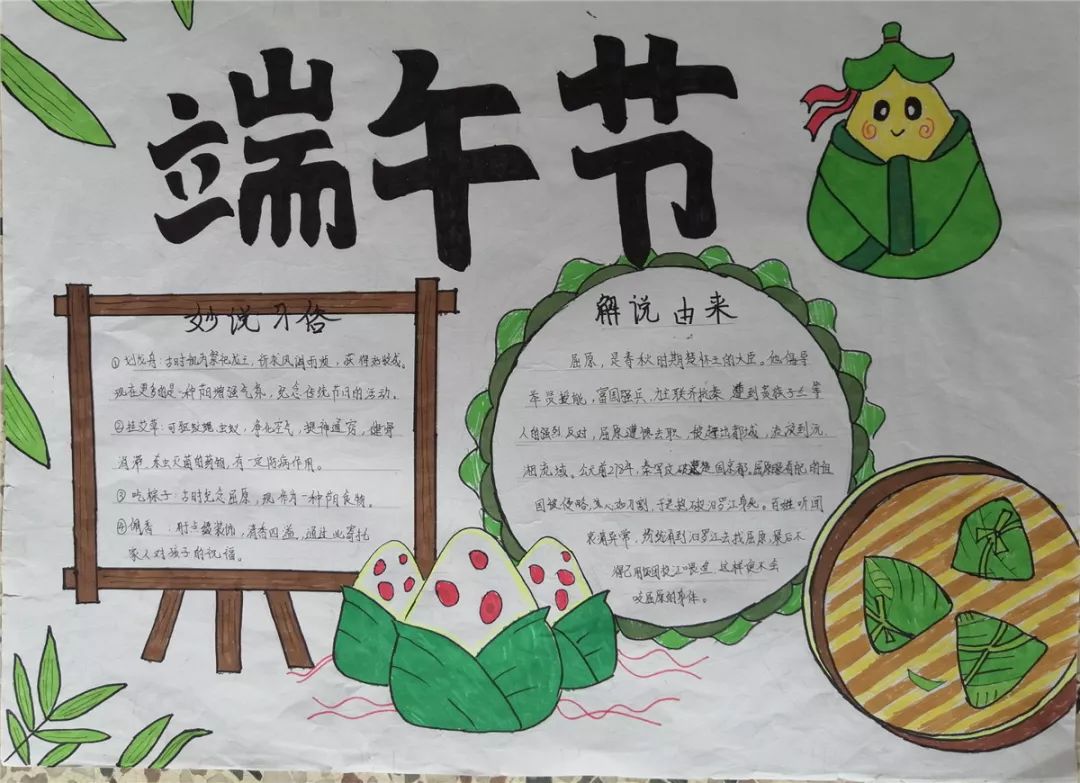 端午节
妙说习俗
①划龙舟：古时祝为祭祀龙王，祈求风调雨顺，获得
现在更多的是一种节日增强气氛，纪念传统节日的活动。
②挂艾草：可驱蚊蝇虫蚁，净化空气，提神通窍，健骨
消滞、杀虫灭菌的药物，有一定防病作用。
③吃粽子：古时纪念屈原，现作为一种节日食物。
④佩香：，清香四溢，通过此寄托
家人对孩子的祝福。
解说由来
屈原，是春秋时期楚怀王的大臣。他倡导
举贤授能，富国强兵，力主联齐抗秦，遭到贵族子兰等
人的强烈反对，屈原遭馋去职，被赶出都城，流放到沅、
湘流域。公元前278年，秦军攻破楚国京都。屈原眼看祖国
国被侵略，心如刀割，于是抱石投汨罗江身死。百姓听闻
哀痛异常，纷纷涌到汨罗江去找屈原，最后不
得已用饭团投江喂鱼，这样便不会
咬屈原的身体。